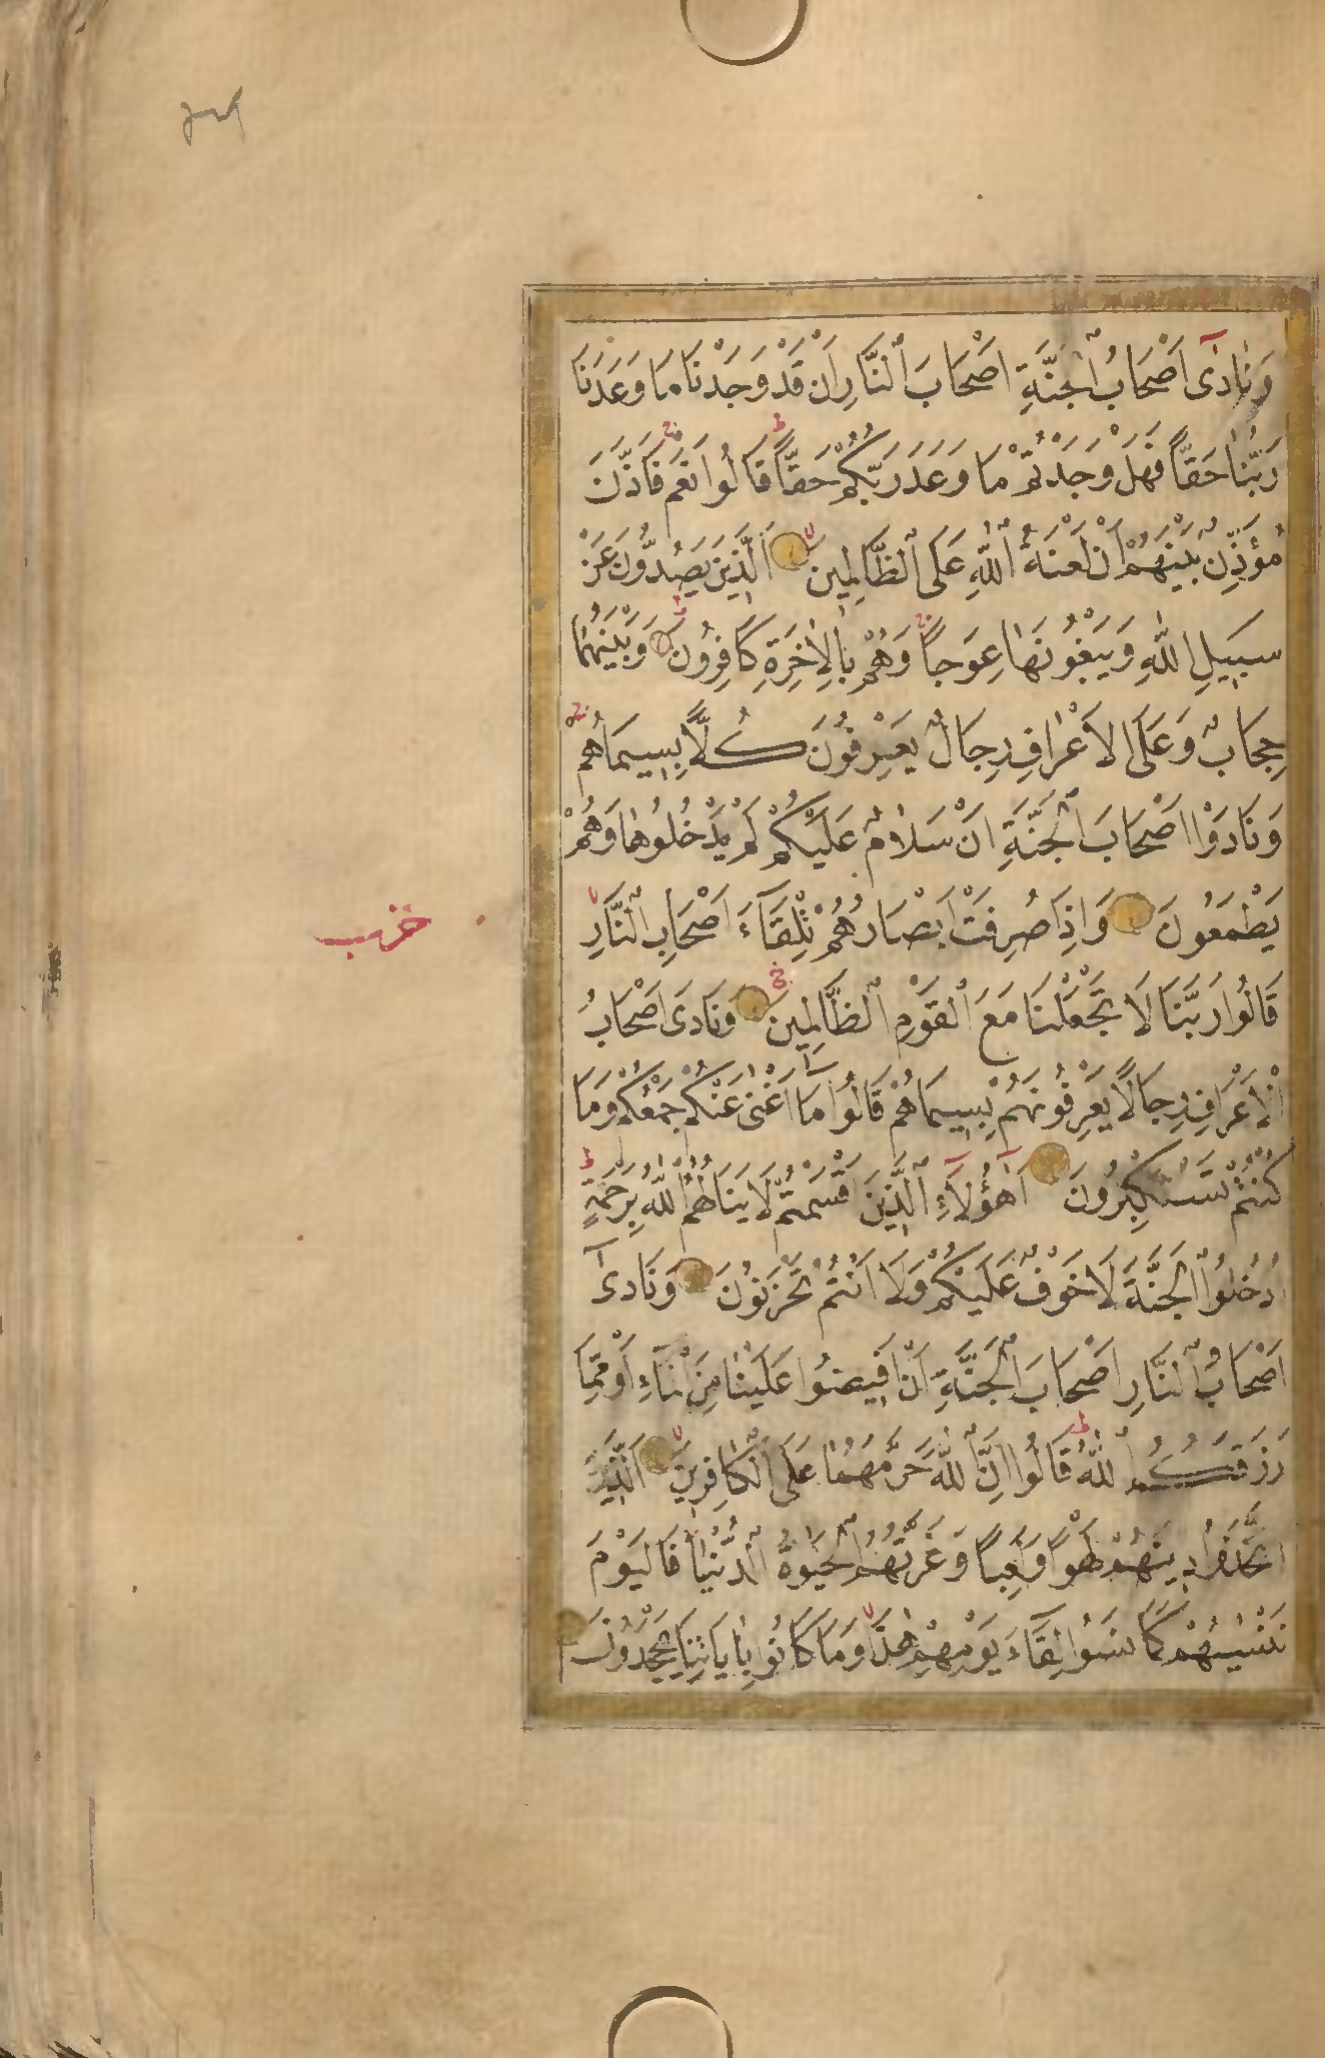 وَنَادٰٓى اَصْحَابُ الْجَنَّةِ اَصْحَابَ النَّارِ اَنْ قَدْ وَجَدْنَا مَا وَعَدَنَا
رَبُّنَا حَقًّا فَهَلْ وَجَدْتُمْ مَا وَعَدَ رَبُّكُمْ حَقًّا قَالُوا نَعَمْ فَاَذَّنَ
مُؤَذِّنٌ بَيْنَهُمْ اَنْ لَعْنَةُ اللّٰهِ عَلَى الظَّالِمِينَ اَلَّذِينَ يَصُدُّونَ عَنْ
سَبِيلِ اللّٰهِ وَيَبْغُونَهَا عِوَجًا وَهُمْ بِالْاٰخِرَةِ كَافِرُونَ وَبَيْنَهُمَا
حِجَابٌ وَعَلَى الْاَعْرَافِ رِجَالٌ يَعْرِفُونَ كُلًّا بِسِيمَاهُمْ
وَنَادَوْا اَصْحَابَ الْجَنَّةِ اَنْ سَلَامٌ عَلَيْكُمْ لَمْ يَدْخُلُوهَا وَهُمْ
يَطْمَعُونَ وَاِذَا صُرِفَتْ اَبْصَارُهُمْ تِلْقَٓاءَ اَصْحَابِ النَّارِ
حزب
قَالُوا رَبَّنَا لَا تَجْعَلْنَا مَعَ الْقَوْمِ الظَّالِمِينَ وَنَادٰى اَصْحَابُ
الْاَعْرَافِ رِجَالًا يَعْرِفُونَهُمْ بِسِيمَاهُمْ قَالُوا مَا اَغْنٰى عَنْكُمْ جَمْعُكُمْ وَمَا
كُنْتُمْ تَسْتَكْبِرُونَ اَهٰٓؤُلَٓاءِ الَّذِينَ اَقْسَمْتُمْ لَا يَنَالُهُمُ اللّٰهُ بِرَحْمَةٍ
اُدْخُلُوا الْجَنَّةَ لَا خَوْفٌ عَلَيْكُمْ وَلَا اَنْتُمْ تَحْزَنُونَ وَنَادٰٓى
اَصْحَابُ النَّارِ اَصْحَابَ الْجَنَّةِ اَنْ اَفِيضُوا عَلَيْنَا مِنَ الْمَٓاءِ اَوْ مِمَّا
رَزَقَكُمُ اللّٰهُ قَالُوا اِنَّ اللّٰهَ حَرَّمَهُمَا عَلَى الْكَافِرِينَ اَلَّذِينَ
اتَّخَذُوا دِينَهُمْ لَهْوًا وَلَعِبًا وَغَرَّتْهُمُ الْحَيٰوةُ الدُّنْيَا فَالْيَوْمَ
نَنْسٰيهُمْ كَمَا نَسُوا لِقَٓاءَ يَوْمِهِمْ هٰذَا وَمَا كَانُوا بِاٰيَاتِنَا يَجْحَدُونَ